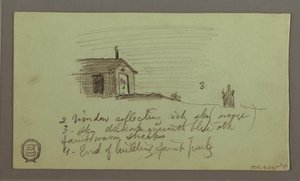 3
2 Window reflecting rich sky orange
3 - Sky delicate greenish blue with
faint warm streaks
4 - End of building faint